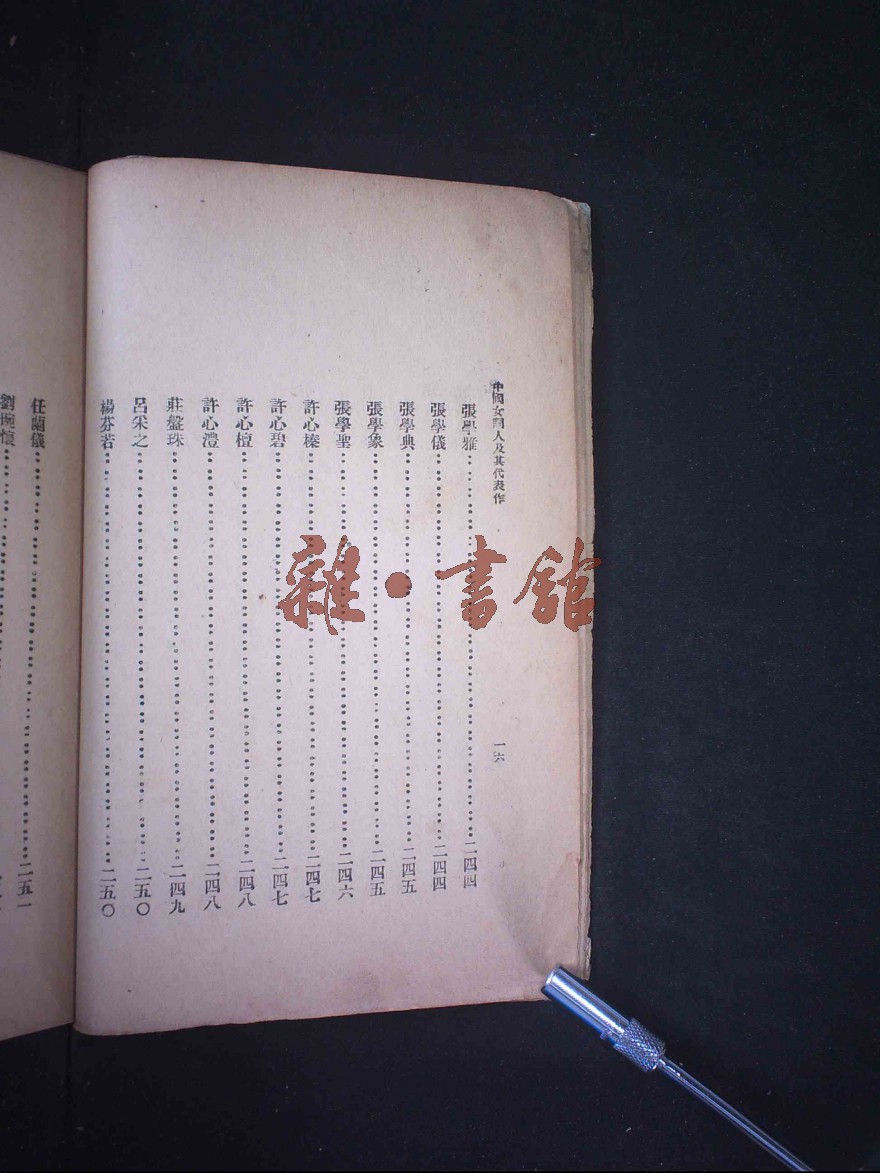 中國女詞人及其代表作
一六
張學雅 二四四
張學儀 二四四
張學典 二四五
張學象 二四五
張學聖 二四六
許心榛 二四七
許心碧 二四七
許心檀 二四八
許心澧 二四八
莊盤珠 二四九
呂采之 二五〇
楊芬若 二五〇
任蘭儀 二五一
劉琬懷
雜·書館